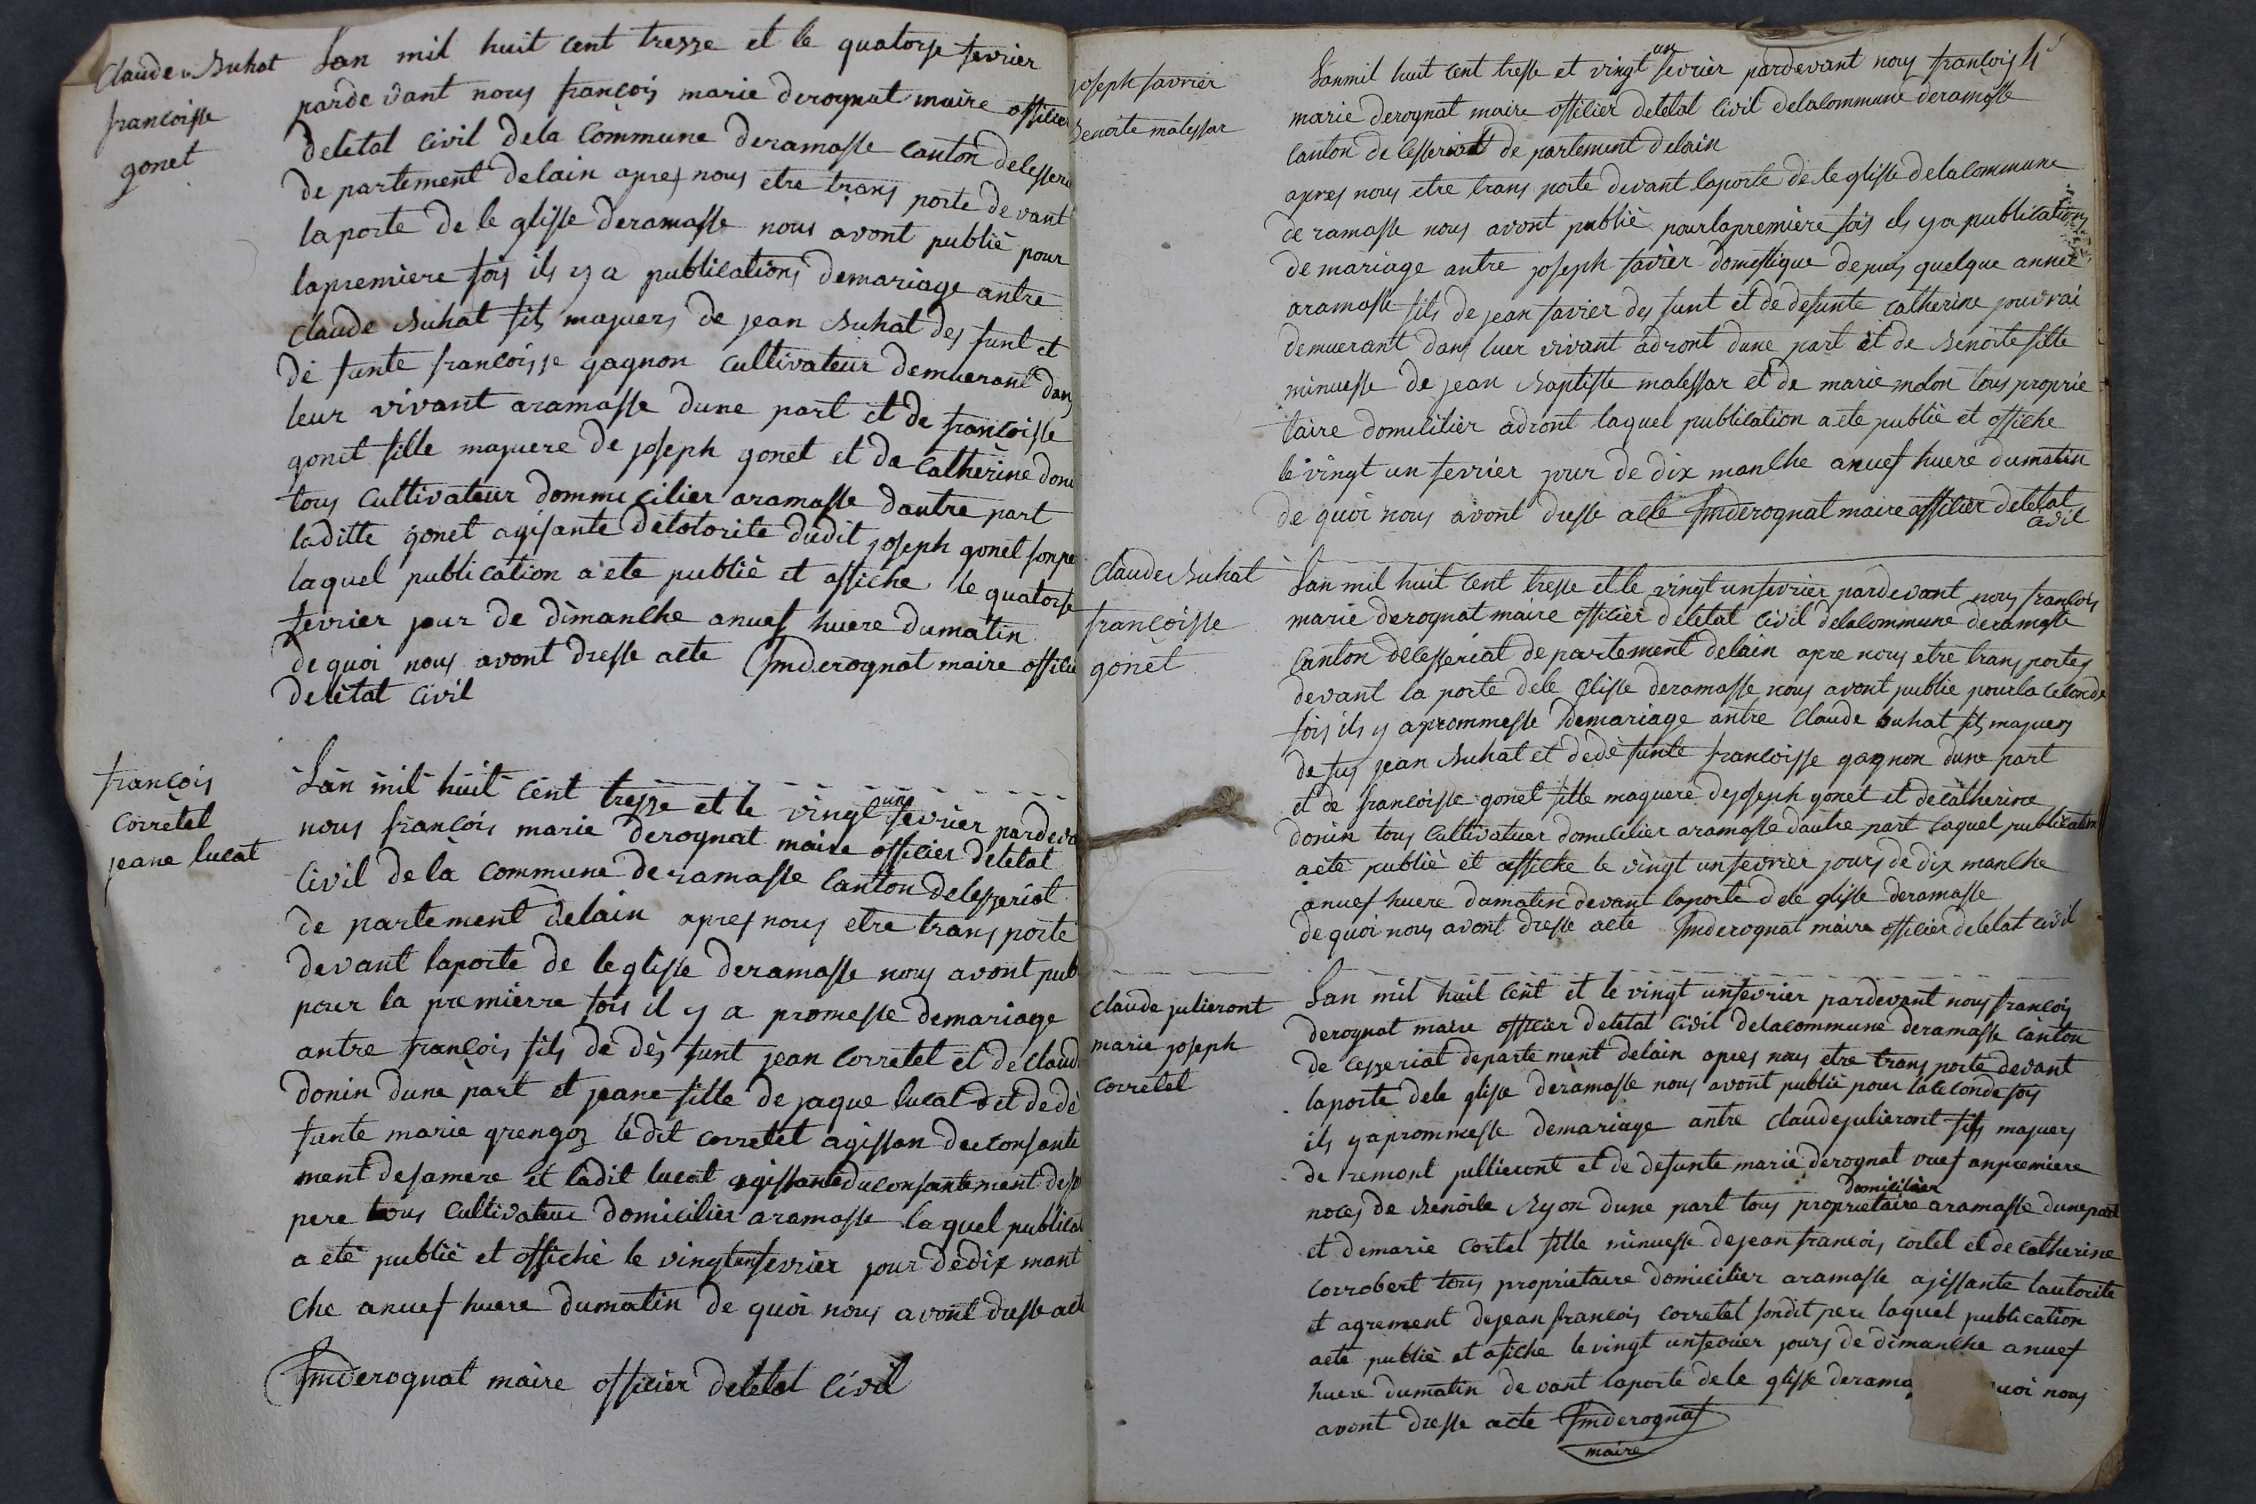 Claude Buhat
francoisse
gonet
Lan mil huit cent tresze et le quatorze fevrier
parde vant nous françois marie derognat maire officier
deletat civil dela Commune deramasse canton delesseria
de partement delain apres nous etre trans porte de vant
laporte de le glisse deramasse nous avont publiè pour
lapremiere fois ils y a publications demariage antre
claude Buhat fils majuers de jean Buhat des funt et
de funte francoisse gagnon cultivateur demuerant dans
leur vivant aramasse dune part et de francoisse
gonet fille majuere de joseph gonet et de Catherine doni
tous cultivateur dommicilier aramasse dautre part
laditte gonet agisante delotorite dudit joseph gonet son pe
laquel publication a ete publiè et affiche le quatorse
fevrier jour de dimanlhe anuef huere dumatin
de quoi nous avont dresse acte fmderognat maire officie
deletat civil
francois
corretel
jeane lucat
Lan mil huit cent tresze et le vingt un fevrier pardeva
nous francois marie derognat maire officier deletat
civil de là commune deramasse canton delesseriat
de partement delain apres nous etre trans porte
devant laporte de leglisse deramasse nous avont pub
pour la premierre fois il y a promesse demariage
antre francois fils de des funt jean corretel et de claud
donin dune part et jeane fille de jaque lucat et dedè
funte marie grengoz ledit corretel agissan deconsante
ment desamere et ladit lucat agissante duconsantement deso
pere tous cultivateur domicilier aramasse laquel publicat
a etè publiè et affichè le vingt un fevrier jour dedix mant
che anuef huere dumatin de quoi nous avont dresse acte
fmderognat maire officier deletat civil
joseph favrier
Benoite malessar
Lanmil huit cent tresse et vingt un fevrier pardevant nous francois
marie derognat maire officier deletat civil delacommune deramasse
canton de lesseriat de partement delain
apres nous etre trans porte devant laporte de leglisse delacommune
de ramasse nous avont publiè pourlapremiere fois ils y a publications
de mariage antre joseph favier domestique depuis quelque annèe
aramasse fils de jean favier des funt et de defunte catherine
demuerant dans luer vivant adront dune part et de Benoite fille
minuesse de jean Baptiste malessar et de marie molon tous proprie
taire domicilier adront laquel publication aete publiè et affiche
le vingt un fevrier jour de dix manlhe anuef huere dumatin
de quoi nous avont dresse acte fmderognat maire officier deletat
civil
Claude Buhat
francoisse
gonet
Lan mil huit cent tresse et le vingt unfevrier pardevant nous francois
marie derognat maire officier deletat civil delacommune deramasse
canton delesseriat de partement delain apre nous etre trans portes
devant la porte dele glisse deramasse nous avont publie pourla celonde
fois ils y aprommesse demariage antre Claude buhat fils majuers
de fus jean Buhat et dede funte francoisse gagnon dune part
et de francoisse gonet fille maguere dejoseph gonet et decatherine
donin tous cultivatuer domicilier aramasse dautre part laquel publication
aetè publiè et affiche le vingt unfevrier jours de dix manlhe
anuef huere dumatin devant laporte dele glisse deramasse
de quoi nous avont dresse acte fmderognat maire officier deletat civil
claude julieront
marie joseph
corretel
Lan mil huil cent et le vingt unfevrier pardevant nous francois
derognat maire officier deletat civil delacommune deramasse canton
de cesseriat departe ment delain apres nous etre trans porte devant
laporte dele glisse deramasse nous avont publiè pour lacelonde fois
ils yaprommesse demariage antre claudejulieront fils majuers
de remont jullieront et de defunte marie derognat vuef anpremiere
noces de Benoite Byon dune part tous proprietaire domicilier aramasse dune part
et demarie cortel fille minuesse dejean francois cortel et de catherine
corrobert tous proprietaire domicilier aramasse ajissante lautorite
et agrement dejean francois corretel sondit pere laquel publication
aete publiè et afiche le vingt unfevrier jours de dimanlhe anuef
huere dumatin de vant laporte dele glisse derama uoi nous
avont dresse acte fmderognat
maire